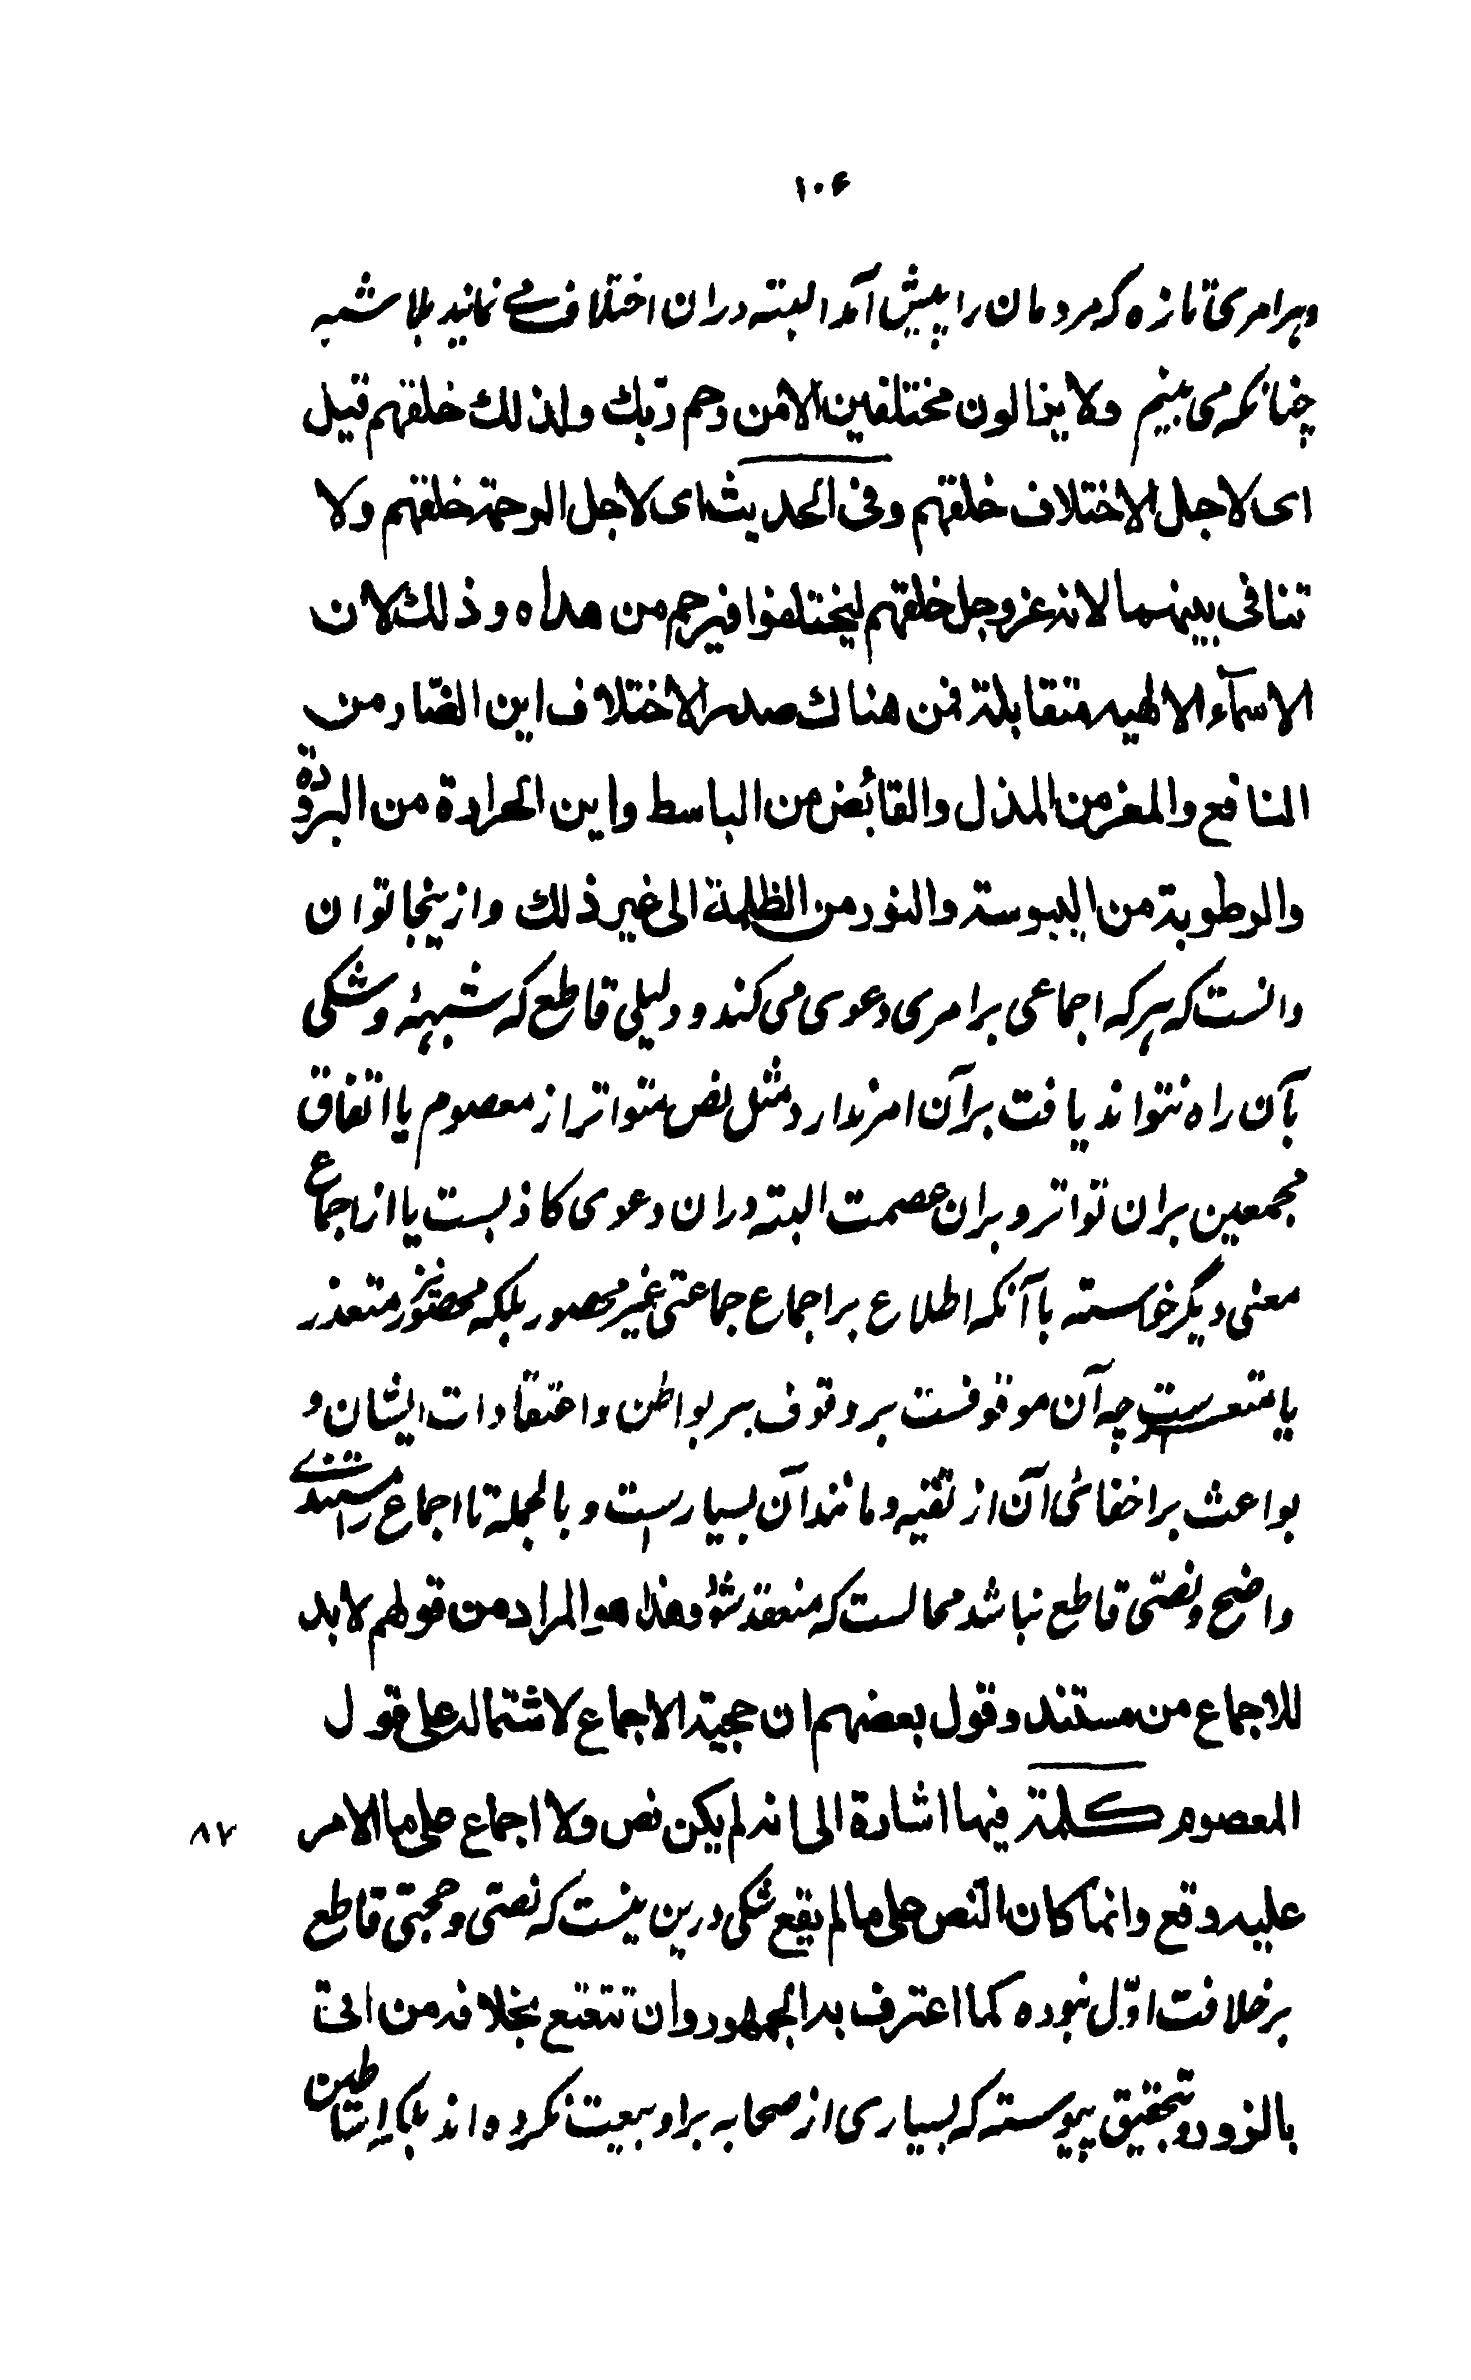 ۱۰۶
وهر امری تازه که مردمان را پیش آمد البته دران اختلاف می نمایند بلا شبه
چنانکه می بینیم ولا یزالون مختلفین الا من رحم ربّك ولذلك خلقهم قیل
ای لاجل الاختلاف خلقهم وفی الحدیث ای لاجل الرحمة خلقهم ولا
تنافی بینهما لانه عز وجل خلقهم لیختلفوا فیرحم من هداه وذلك لان
الاسمآء الالهیه متقابلة فمن هناك صدر الاختلاف این الضّار من
النافع والمعز من المذل والقابض من الباسط واین الحرارة من البرودة
والرطوبة من الیبوسة والنور من الظلمة الی غیر ذلك وازینجا توان
دانست که هر که اجماعی بر امری دعوی می کند و دلیلی قاطع که شبههٔ وشکی
بآن راه نتواند یافت برآن امر ندارد مثل نص متواتر از معصوم یا اتفاق
مجمعین بران تواتر و بران عصمت البته دران دعوی کاذبست یا از اجماع
معنی دیگر خواسته با آنکه اطلاع بر اجماع جماعتی غیر محصور بلکه محصور نیز متعذر
یا متعسرست چه آن موقوفست بر وقوف بر بواطن واعتقادات ایشان و
بواعث بر اخفائی آن از تقیه و مانند آن بسیارست و بالجملة تا اجماع را مستندی
واضح ونصّی قاطع نباشد محالست که منعقد شود وهذا هو المراد من قولهم لا بد
للاجماع من مستند وقول بعضهم ان حجیة الاجماع لاشتماله علی قول
المعصوم کلمة فیها اشارة الی انه لم یکن نص ولا اجماع علی ما الامر
۸۷
علیه وقع وانما کان النص علی ما لم یقع شکی درین نیست که نصّی وحجتی قاطع
بر خلافت اوّل نبوده کما اعترف به الجمهور وان تتعتع بخلافه من اتی
بالزور وتحقیق پیوسته که بسیاری از صحابه براو بیعت نکرده اند بلکه اساطین